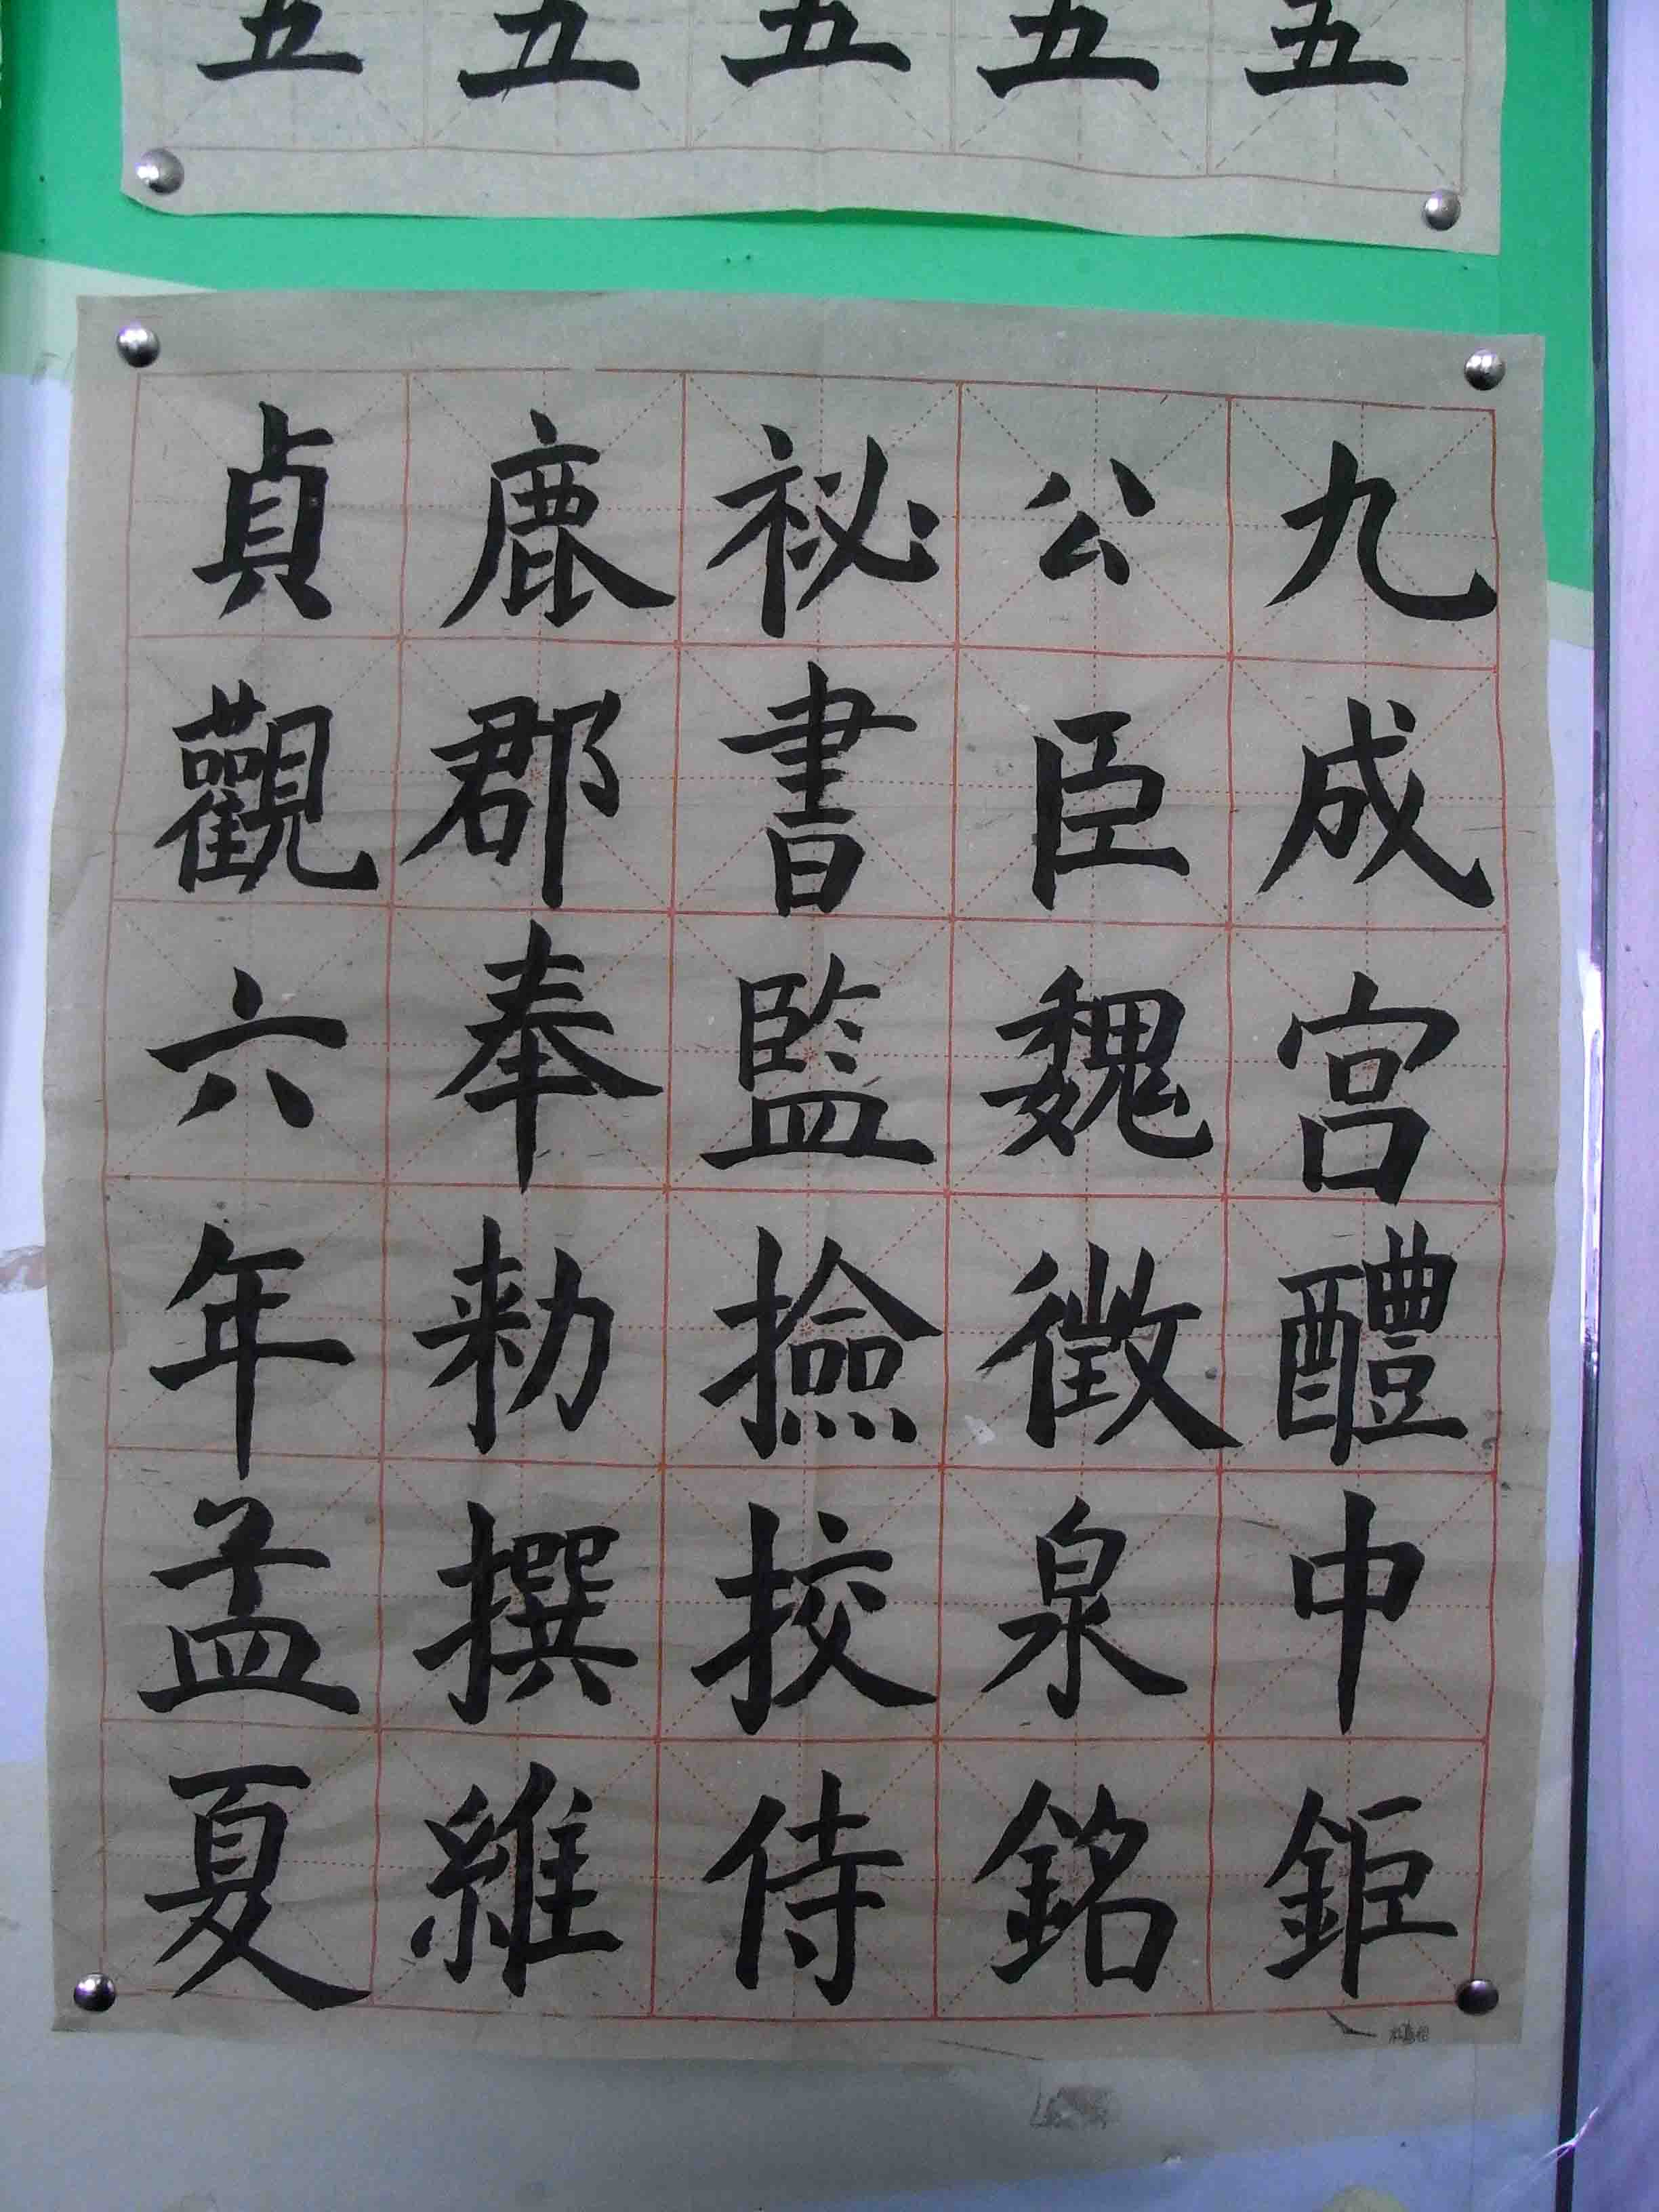 五五五五五
九成宫醴中鉅
公臣魏徵泉銘
祕書監撿挍侍
鹿郡奉勑撰維
貞觀六年孟夏